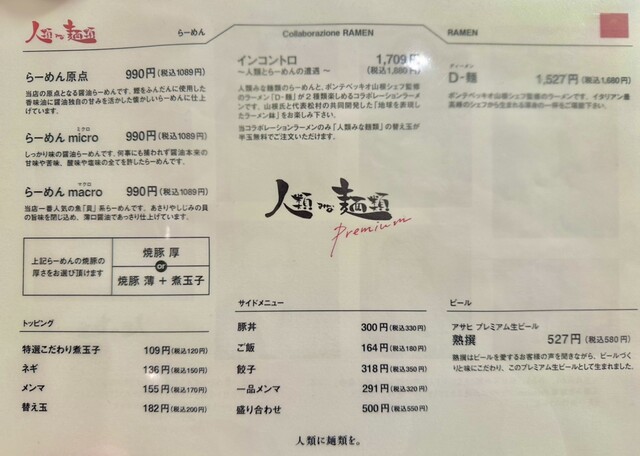 人類みな麺類
らーめん
Collaborazione RAMEN
RAMEN
らーめん原点 990円(税込1089円)
当店の原点となる醤油らーめんです。鰹をふんだんに使用した
香味油に醤油独自の甘みを活かした懐かしいらーめんに仕上
げています。
ミクロ
らーめん micro 990円(税込1089円)
しっかり味の醤油らーめんです。何事にも捕われず醤油本来の
甘味や苦味、酸味や塩味の全てを許したらーめんです。
マクロ
らーめん macro 990円(税込1089円)
当店一番人気の魚「貝」系らーめんです。あさりやしじみの貝
の旨味を閉じ込め、薄口醤油であっさり仕上げています。
上記らーめんの焼豚の
厚さをお選び頂けます
焼豚 厚
or
焼豚 薄 + 煮玉子
トッピング
特選こだわり煮玉子 109円(税込120円)
ネギ 136円(税込150円)
メンマ 155円(税込170円)
替え玉 182円(税込200円)
インコントロ 1,709円
〜人類とらーめんの遭遇〜 (税込1,880円)
人類みな麺類のらーめんと、ポンテベッキオ山根シェフ監修
のラーメン「D-麺」が2種類楽しめるコラボレーションラーメ
ンです。山根氏と代表松村の共同開発した「地球を表現し
たラーメン鉢」をお楽しみ下さい。
当コラボレーションラーメンのみ「人類みな麺類」の替え玉が
半玉無料でご注文いただけます。
人類みな麺類
Premium
サイドメニュー
豚丼 300円(税込330円)
ご飯 164円(税込180円)
餃子 318円(税込350円)
一品メンマ 291円(税込320円)
盛り合わせ 500円(税込550円)
ディーメン
D-麺 1,527円(税込1,680円)
ポンテベッキオ山根シェフ監修のラーメンです。イタリアン最
高峰のシェフから生まれる渾身の一杯をご堪能下さい。
ビール
アサヒ プレミアム生ビール
熟撰 527円(税込580円)
熟撰はビールを愛するお客様の声を聞きながら、ビールづく
りと味にこだわり、このプレミアム生ビールとして生まれました。
人類に麺類を。